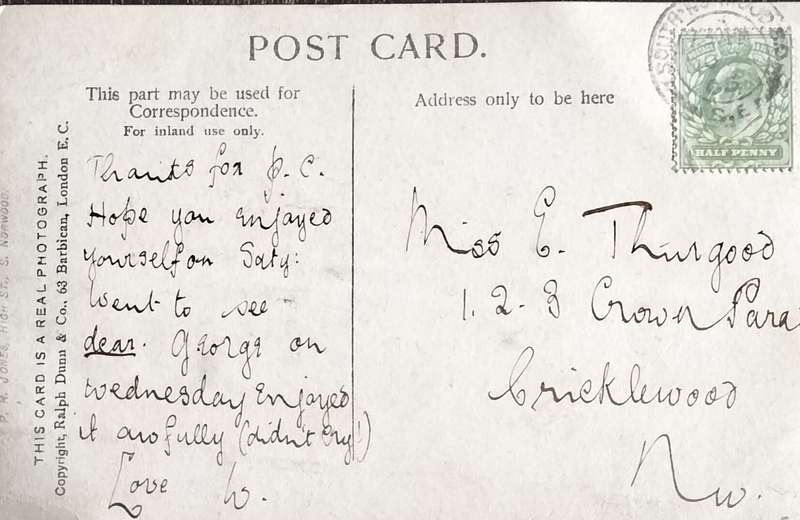 POST CARD.
This part may be used for
Correspondence.
For inland use only.
Address only to be here
HALF PENNY
THIS CARD IS A REAL PHOTOGRAPH.
Copyright, Ralph Dunn & Co., 63 Barbican, London E.C.
JONES, HIGH ST., S. NORWOOD
Thanks for p.c.
Hope you enjoyed
yourself on Saty:
Went to see
dear. George on
Wednesday enjoyed
it awfully (didn't cry!)
Love W.
Miss E. Thurgood
1. 2. 3 Crown Para
Cricklewood
NW.